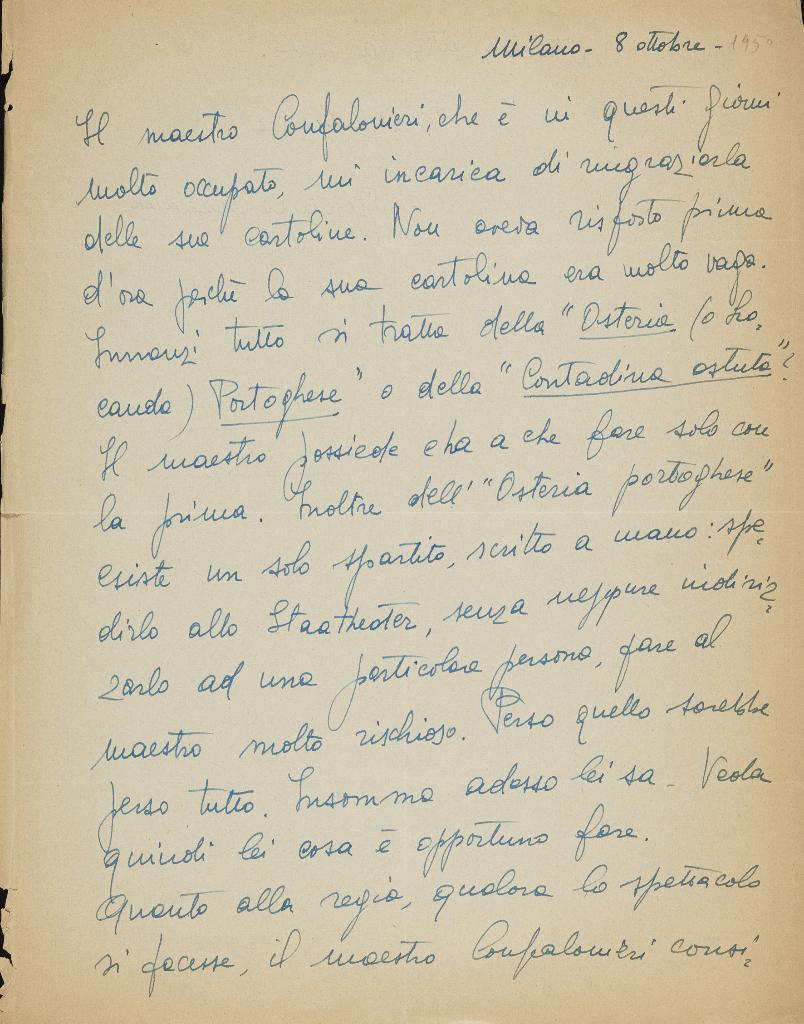 Milano - 8 ottobre - 195
Il maestro Confalonieri, che è in questi giorni
molto occupato, mi incarica di ringraziarla
delle sue cartoline. Non aveva risposto prima
d'ora perché la sua cartolina era molto vaga.
Innanzi tutto si tratta della "Osteria (o Lo=
canda) Portoghese" o della "Contadina astuta"?
Il maestro possiede e ha a che fare solo con
la prima. Inoltre dell'"Osteria portoghese"
esiste un solo spartito, scritto a mano: spe=
dirlo allo Staatheater, senza neppure indiriz=
zarlo ad una particolare persona, pare al
maestro molto rischioso. Perso quello sarebbe
perso tutto. Insomma adesso lei sa - Veda
quindi lei cosa è opportuno fare.
Quanto alla regia, qualora lo spettacolo
si facesse, il maestro Confalonieri consi=